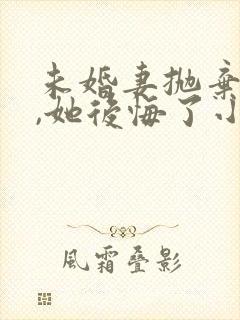 未婚妻抛棄
,她後悔了小
風霜叠影